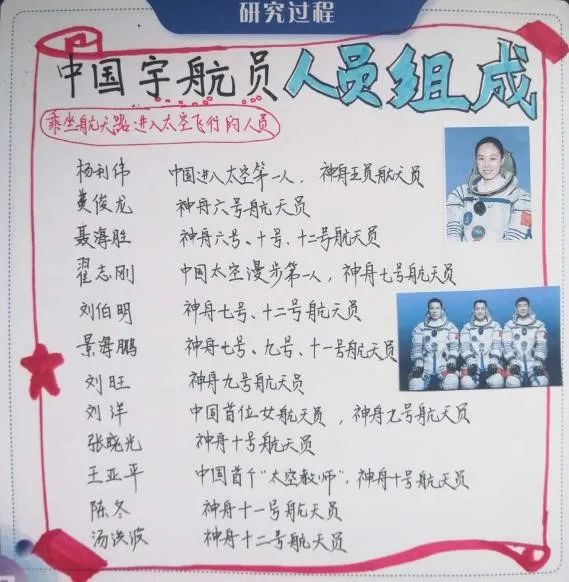 研究过程
中国宇航员人员组成
乘坐航天器进入太空飞行的人员
杨利伟 中国进入太空第一人，神舟五号航天员
费俊龙 神舟六号航天员
聂海胜 神舟六号、十号、十二号航天员
翟志刚 中国太空漫步第一人，神舟七号航天员
刘伯明 神舟七号、十二号航天员
景海鹏 神舟七号、九号、十一号航天员
刘旺 神舟九号航天员
刘洋 中国首位女航天员，神舟九号航天员
张晓光 神舟十号航天员
王亚平 中国首个“太空教师”，神舟十号航天员
陈冬 神舟十一号航天员
汤洪波 神舟十二号航天员